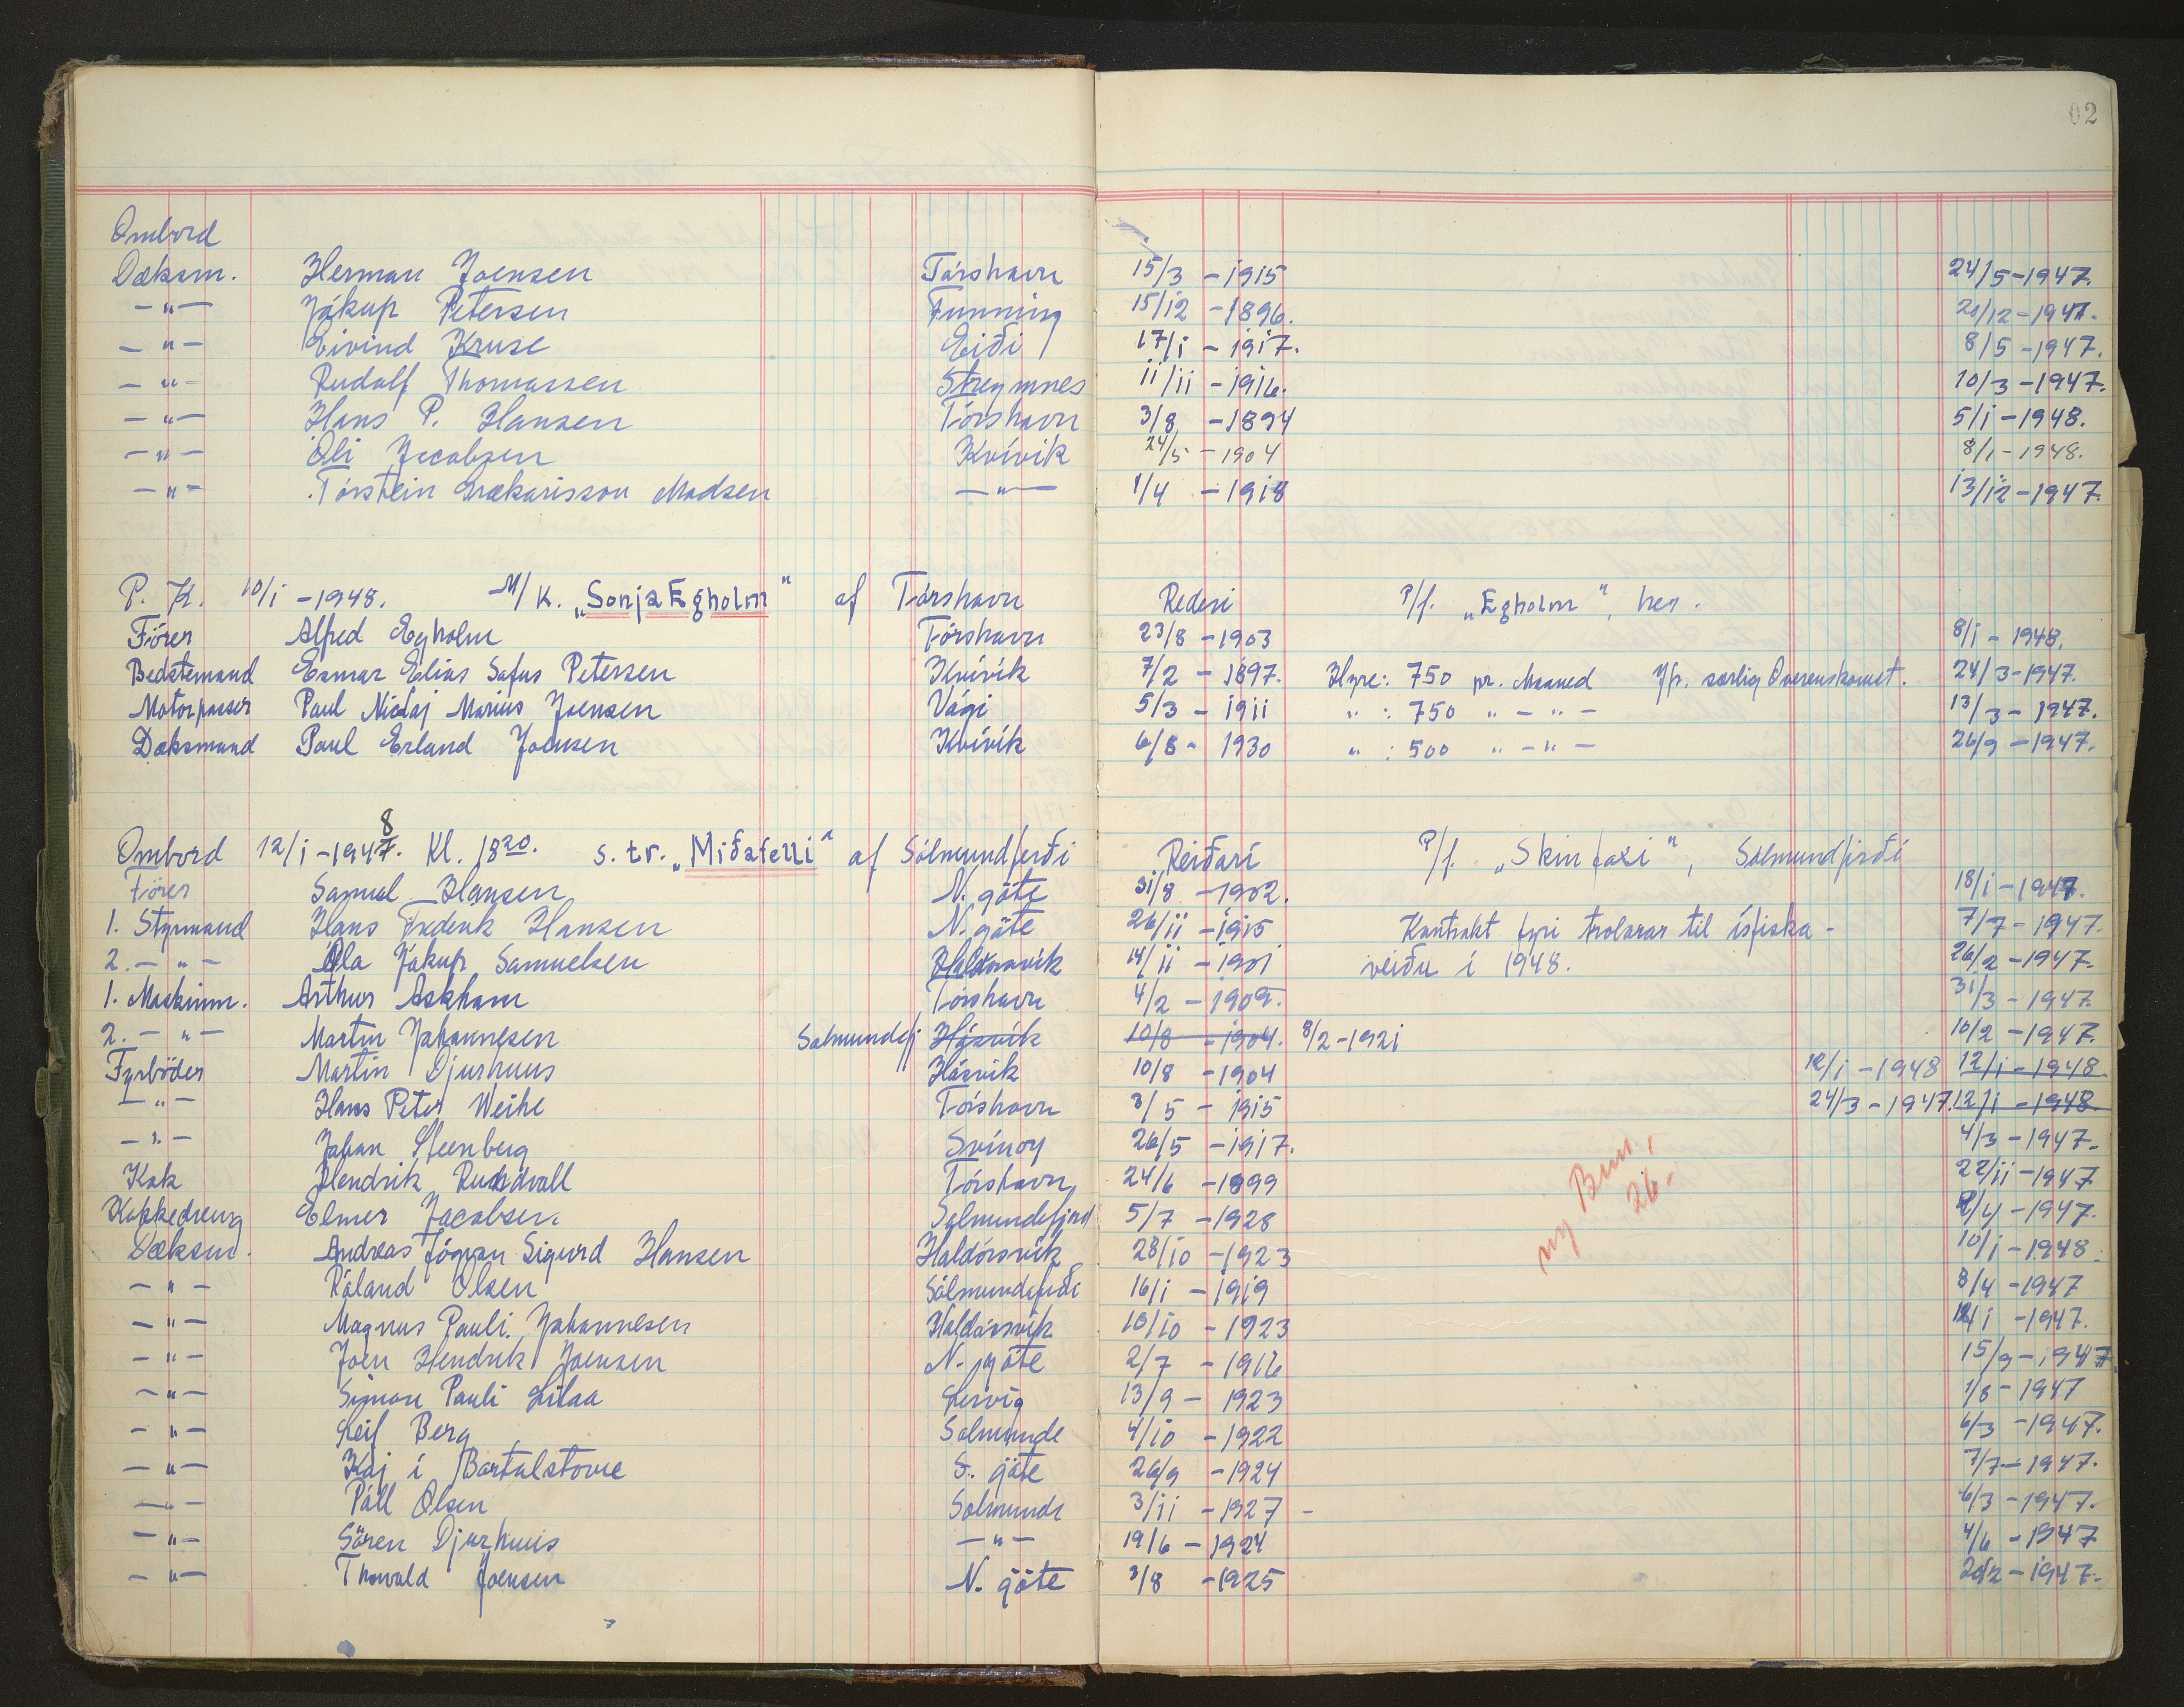 02
Ombord
Dæksm. Herman Joensen Tórshavn 15/3 - 1915 24/5 - 1947.
- " - Jákup Petersen Funning 15/12 - 1896. 20/12 - 1947.
- " - Eivind Kruse Eiði 17/1 - 1917. 8/5 - 1947.
- " - Rudolf Thomassen Streymnes 11/11 - 1916. 10/3 - 1947.
- " - Hans P. Hansen Tórshavn 3/8 - 1894 5/1 - 1948.
- " - Óli Jacobsen Kvívík 24/5 - 1904 8/1 - 1948.
- " - Tórstein Madsen - " - 1/4 - 1918 13/12 - 1947.
P. K. 10/1 - 1948. M/K. „Sonja Egholm" af Tórshavn Rederi P/f. „Egholm", her.
Fører Alfred Egholm Tórshavn 23/8 - 1903 8/1 - 1948.
Bedstemand Esmar Elias Sofus Petersen Kvívík 7/2 - 1897. Hyre: 750 pr. Maaned Jfr. særlig Overenskomst. 24/3 - 1947.
Motorpasser Paul Nicolaj Marius Joensen Vági 5/3 - 1911 " : 750 " - " - 13/3 - 1947.
Dæksmand Paul Erland Joensen Kvívík 6/8 - 1930 " : 500 " - " - 26/9 - 1947.
Ombord 12/1 - 1948. Kl. 18 20. s. tr. „Miðafelli" af Sólmundfirði Reiðarí P/f. „Skinfaxi", Sólmundfirði
Fører Samuel Hansen N. göte 31/8 - 1902. 18/1 - 1947.
1. Styrmand Hans Frederik Hansen N. göte 26/11 - 1915 Kontrakt fyri trolarar til ísfiska - 7/7 - 1947.
2. - " - Óla Jákup Samuelsen Haldórsvik 14/11 - 1901 veiðu í 1948. 26/2 - 1947.
1. Maskinm. Arthur Askham Tórshavn 4/2 - 1909. 31/3 - 1947.
2. - " - Martin Johannesen Solmundefj Hósvík 10/8 - 1904. 8/2 - 1921 10/2 - 1947.
Fyrböder Martin Djurhuus Hósvik 10/8 - 1904 12/1 - 1948 12/1 - 1948
- " - Hans Peter Weihe Tórshavn 3/5 - 1915 24/3 - 1947. 12/1 - 1948.
- " - Johan Steenberg Svínoy 26/5 - 1917. 4/3 - 1947.
Kok Hendrik Tórshavn 24/6 - 1899 22/11 - 1947
Kokkedreng Elmer Jacobsen Solmundefjord 5/7 - 1928 - 1947.
Dæksm. Andreas Jógvan Sigurd Hansen Haldórsvík 28/10 - 1923 10/1 - 1948.
- " - Róland Olsen Sólmundefirði 16/1 - 1919 8/4 - 1947
- " - Magnus Pauli Johannesen Haldórsvík 10/10 - 1923 - 1947.
- " - Joen Hendrik Joensen N. göte 2/7 - 1916 15/9 - 1947
- " - Simon Pauli Lilaa Lervig 13/9 - 1923 1/8 - 1947
- " - Leif Berg Solmunde 4/10 - 1922 6/3 - 1947.
- " - Kaj í Bartalstovu S. göte 26/9 - 1924 7/7 - 1947.
- " - Páll Olsen Solmunde 3/11 - 1927 - 6/3 - 1947.
- " - Sören Djurhuus - " - 19/6 - 1924 4/6 - 1947
- " - Thorvald Joensen N. göte 3/8 - 1925 20/2 - 1947.
ny
26.